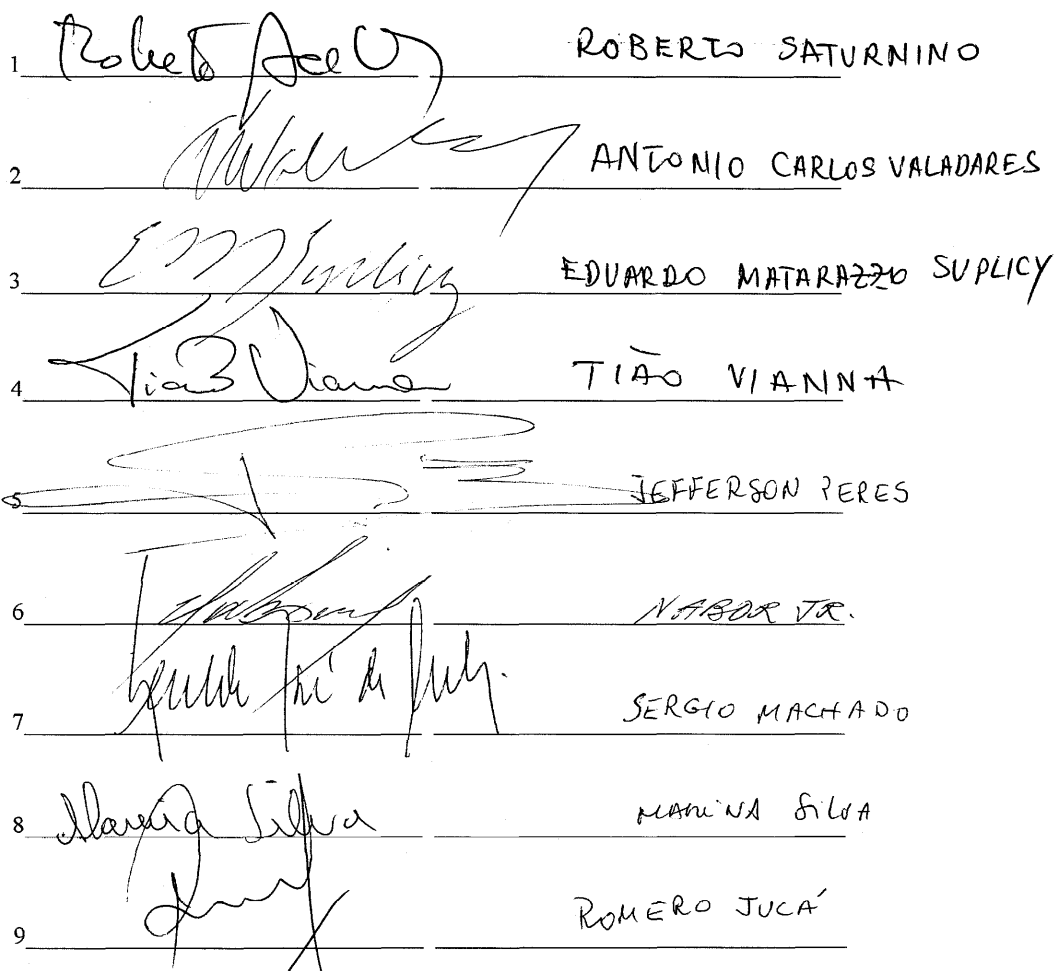 1 Roberto ROBERTO SATURNINO
2 ANTONIO CARLOS VALADARES
3 EM Suplicy EDUARDO MATARAZZO SUPLICY
4 Tião Viana TIÃO VIANNA
5 JEFFERSON PERES
6 NABOR JR.
7 SERGIO MACHADO
8 Marina Silva MARINA SILVA
9 ROMERO JUCÁ